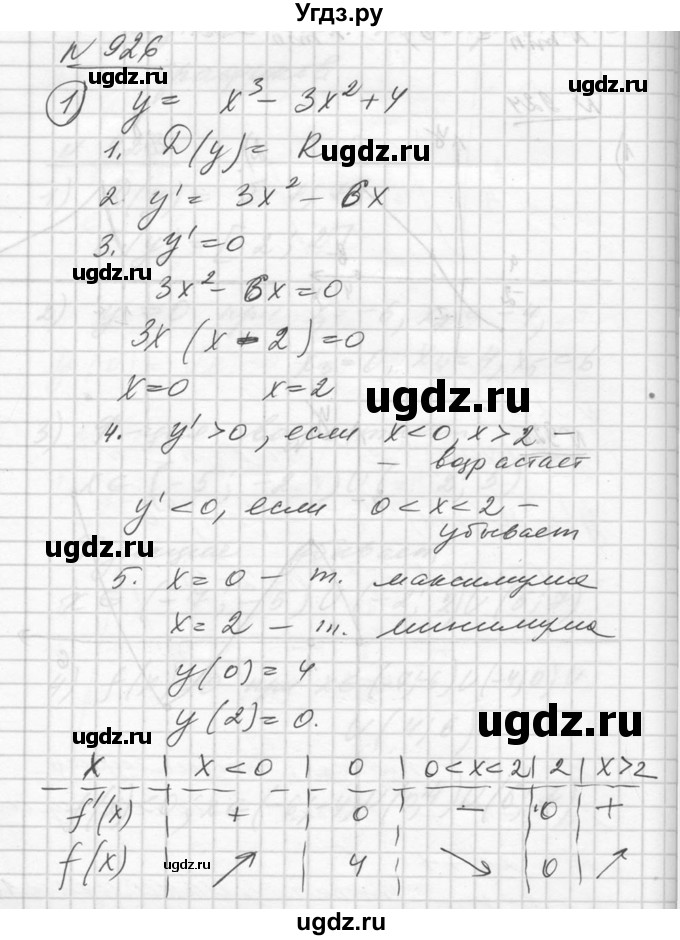 Угдз.ру
№ 926
ugdz.ru
ugdz.ru
1) y = x³ - 3x² + 4
1. D(y) = R
ugdz.ru
2. y' = 3x² - 6x
3. y' = 0
ugdz.ru
3x² - 6x = 0
3x(x - 2) = 0
x = 0 x = 2
ugdz.ru
4. y' > 0, если x < 0, x > 2 -
- возрастает
y' < 0, если 0 < x < 2 -
убывает
ugdz.ru
5. x = 0 - т. максимума
x = 2 - т. минимума
y(0) = 4
y(2) = 0.
ugdz.ru
ugdz.ru
x | x < 0 | 0 | 0 < x < 2 | 2 | x > 2
f'(x) | + | 0 | - | 0 | +
f(x) | ↗ | 4 | ↘ | 0 | ↗
ugdz.ru
ugdz.ru